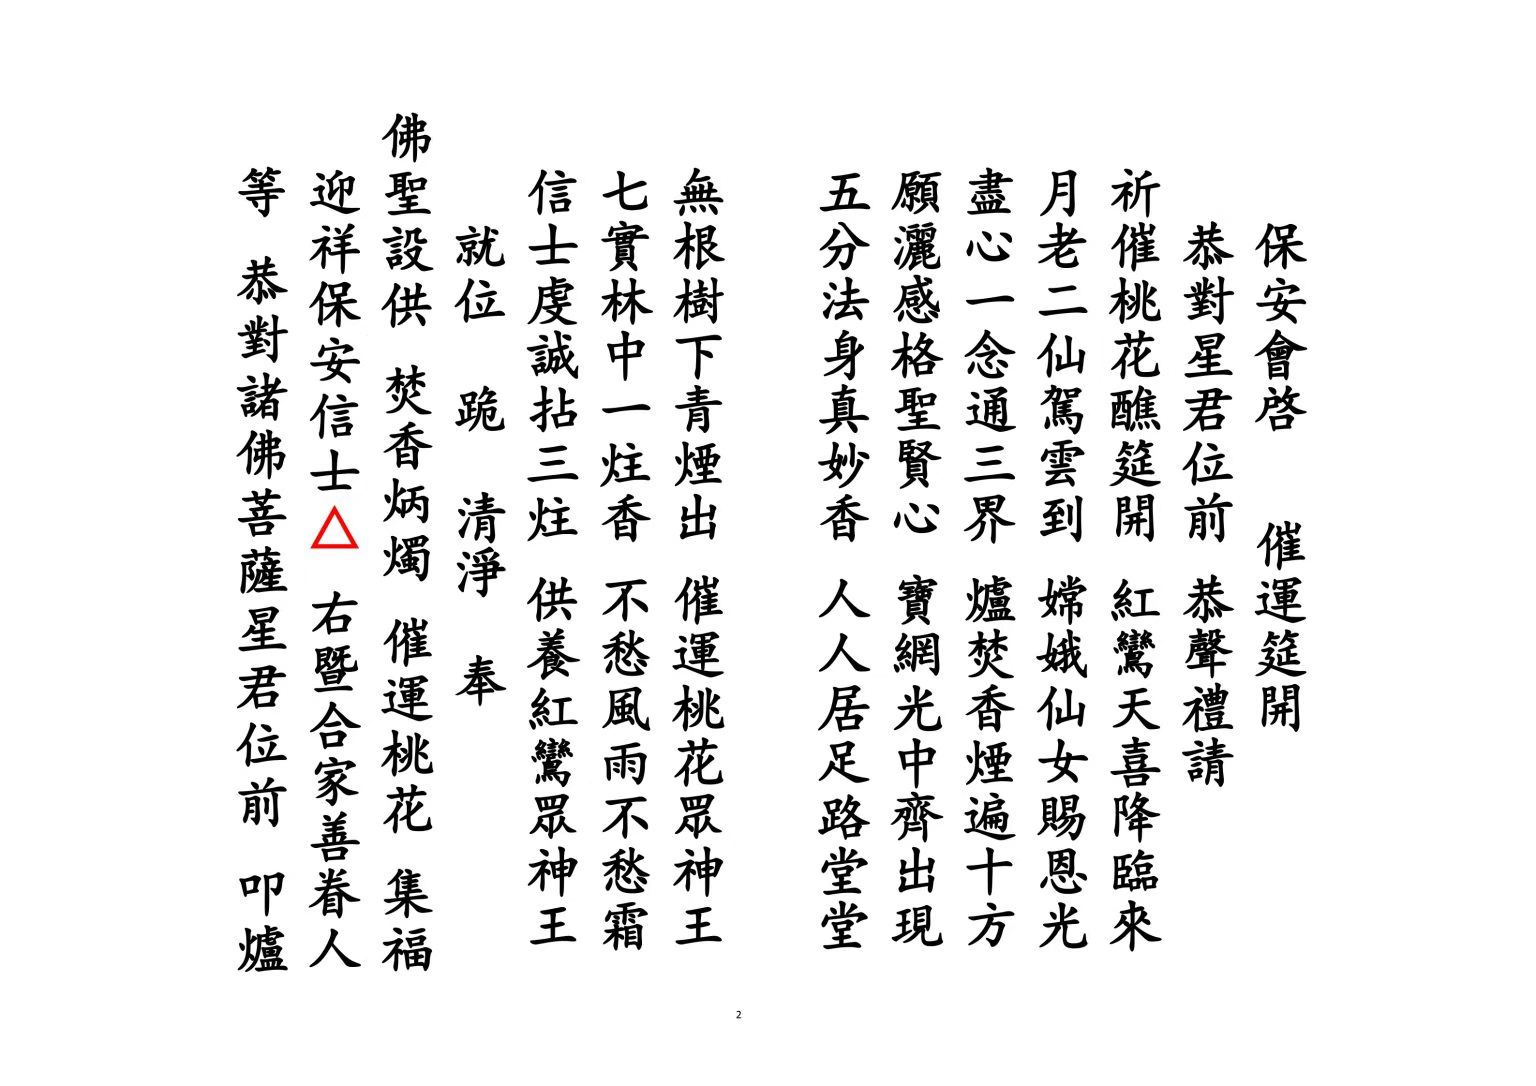 保安會啓　催運筵開
恭對星君位前　恭聲禮請
祈催桃花醮筵開　紅鸞天喜降臨來
月老二仙駕雲到　嫦娥仙女賜恩光
盡心一念通三界　爐焚香煙遍十方
願灑感格聖賢心　寶網光中齊出現
五分法身真妙香　人人居足路堂堂
無根樹下青煙出　催運桃花眾神王
七實林中一炷香　不愁風雨不愁霜
信士虔誠拈三炷　供養紅鸞眾神王
就位　跪　清淨　奉
佛聖設供　焚香炳燭　催運桃花　集福
迎祥保安信士△　右暨合家善眷人
等　恭對諸佛菩薩星君位前　叩爐
2